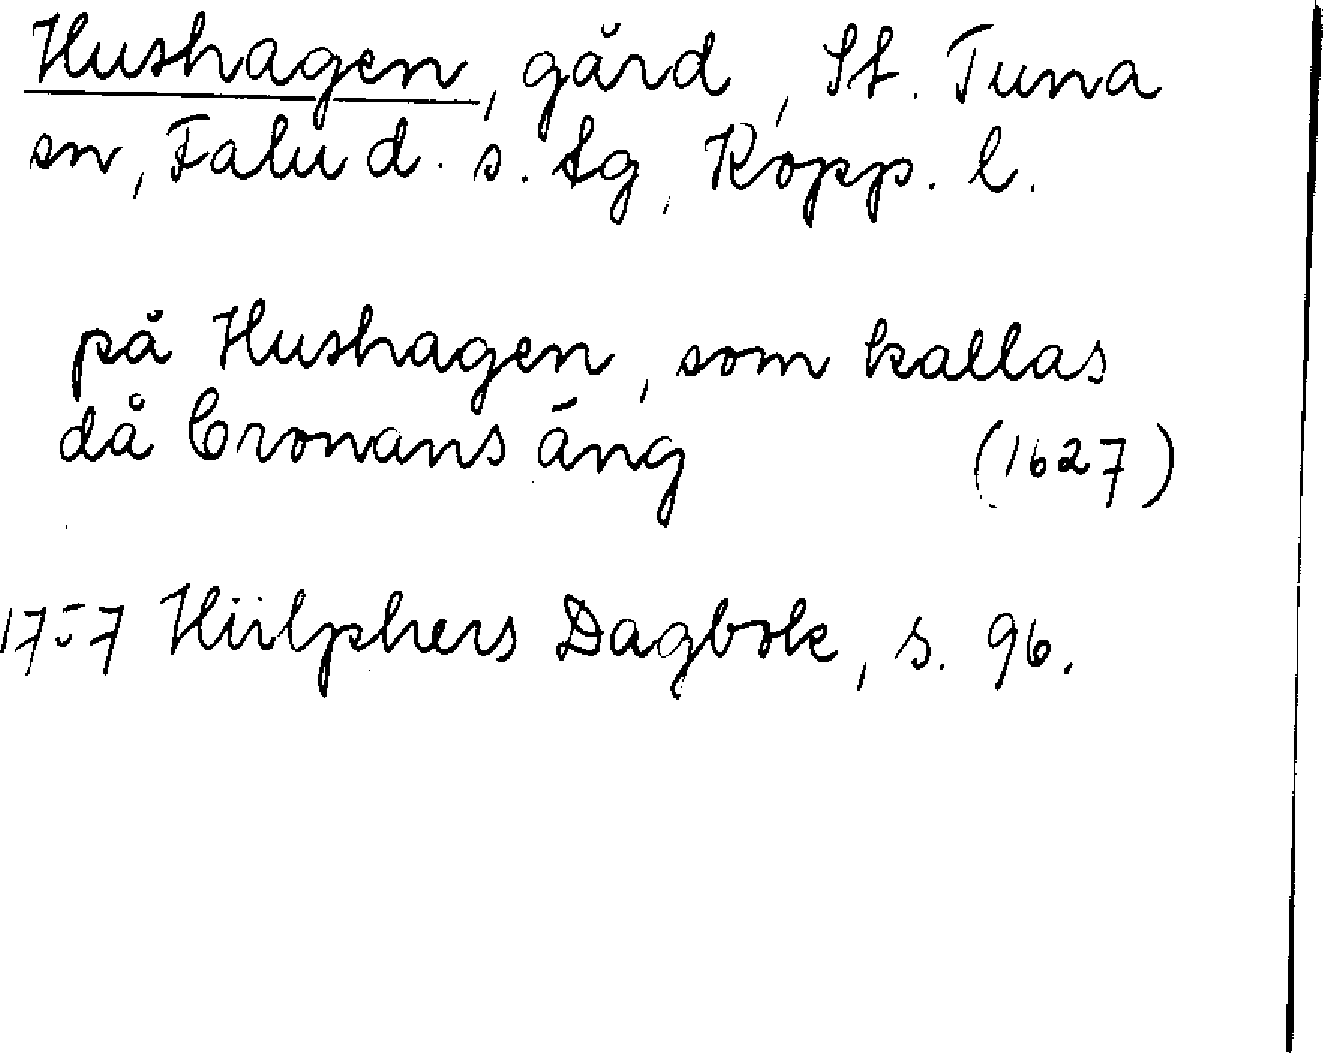 Hushagen, gård, St. Tuna
sn, Falu d. s. tg, Kopp. l.
på Hushagen, som kallas
då Cronans äng (1627)
1757 Hülphers Dagbok, s. 96.